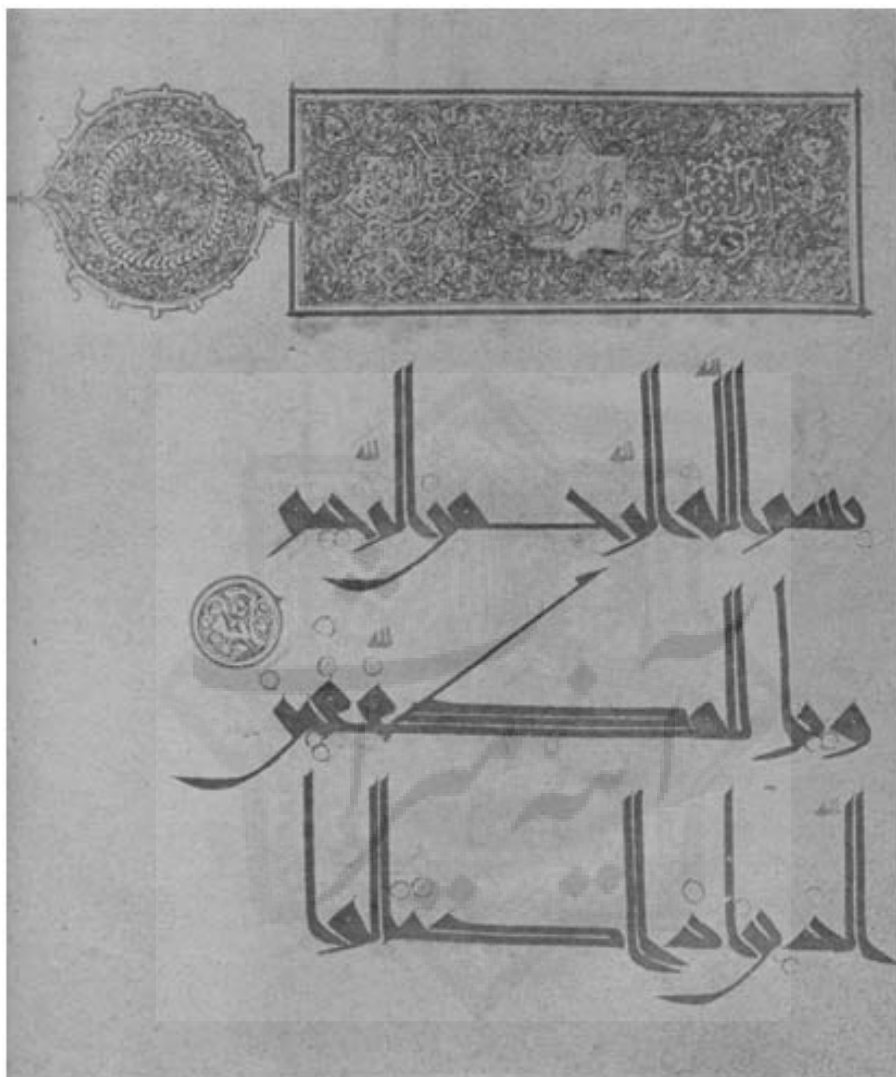 بسم الله الرحمن الرحيم
ويل للمطففين
الذين اذا اكتالوا